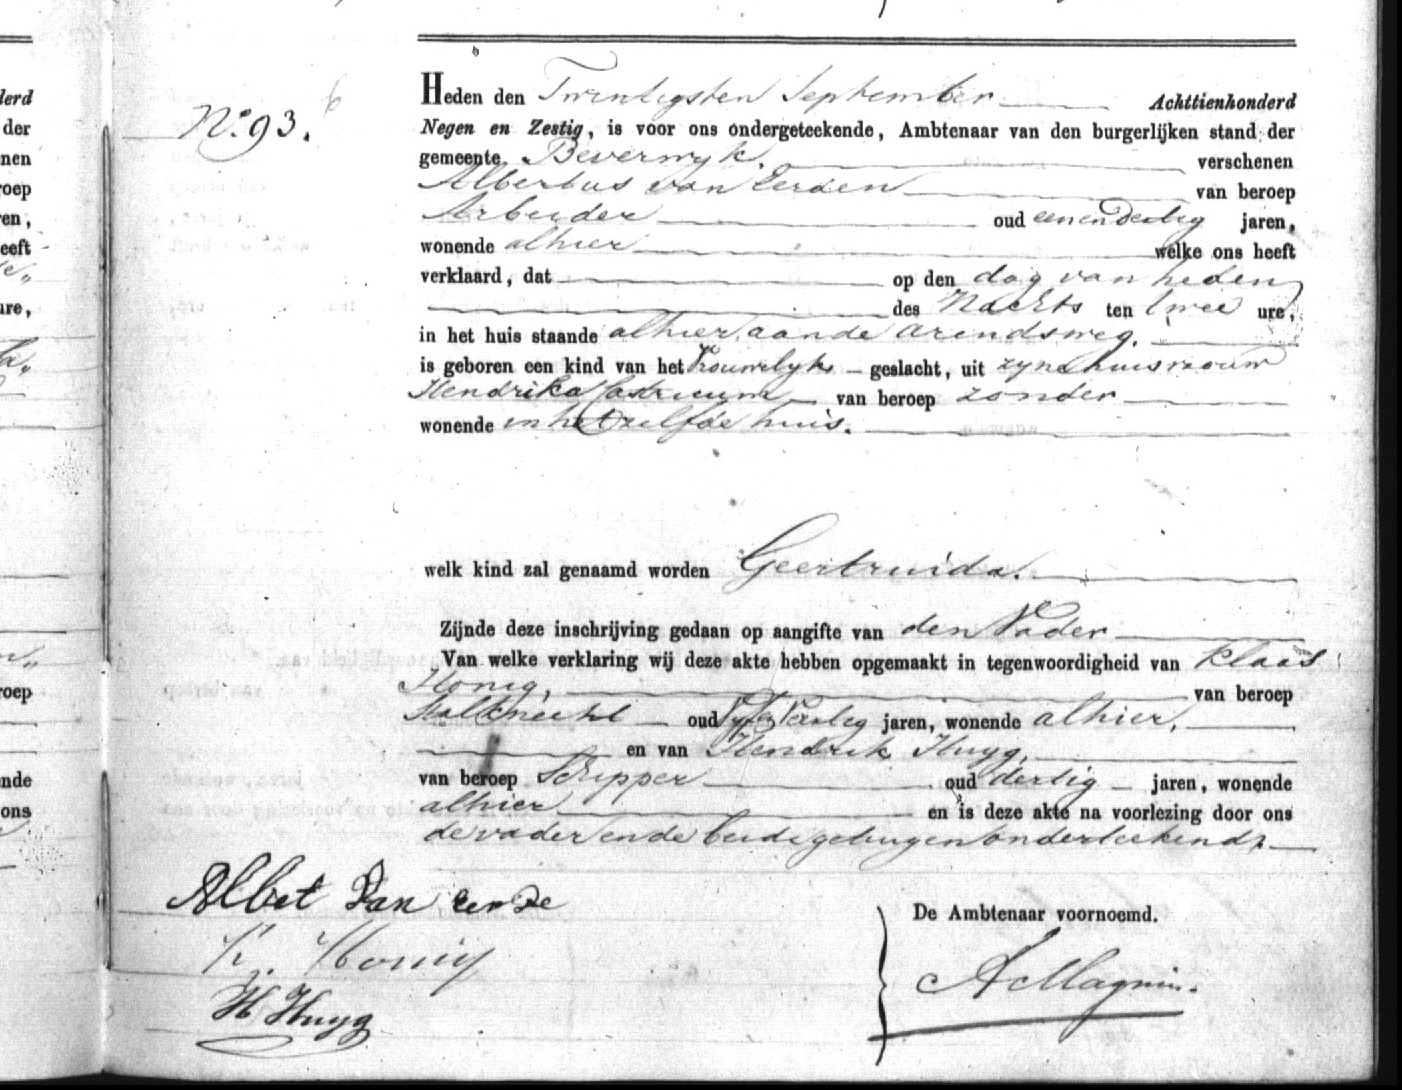 No 93.
Heden den Twintigsten September Achttienhonderd
Negen en Zestig, is voor ons ondergeteekende, Ambtenaar van den burgerlijken stand der
gemeente Beverwyk. verschenen
Albertus van Eerden van beroep
Arbeider oud eenendertig jaren,
wonende alhier welke ons heeft
verklaard, dat op den dag van heden
des Nachts ten twee ure,
in het huis staande alhier aan de arendsweg.
is geboren een kind van het Vrouwelyk geslacht, uit zyne huisvrouw
Hendrika Castricum van beroep zonder
wonende in het zelfde huis.
welk kind zal genaamd worden Geertruida.
Zijnde deze inschrijving gedaan op aangifte van den Vader
Van welke verklaring wij deze akte hebben opgemaakt in tegenwoordigheid van Klaas
Honig, van beroep
Stalknecht oud jaren, wonende alhier,
en van Hendrik Huyg,
van beroep Schipper oud dertig jaren, wonende
alhier en is deze akte na voorlezing door ons
de vader en de beide getuigen onderteekend.
Albet Van eerde
K. Honig
H Huyg
De Ambtenaar voornoemd.
lerd
der
nen
roep
ren,
eeft
ure,
roep
nde
ons